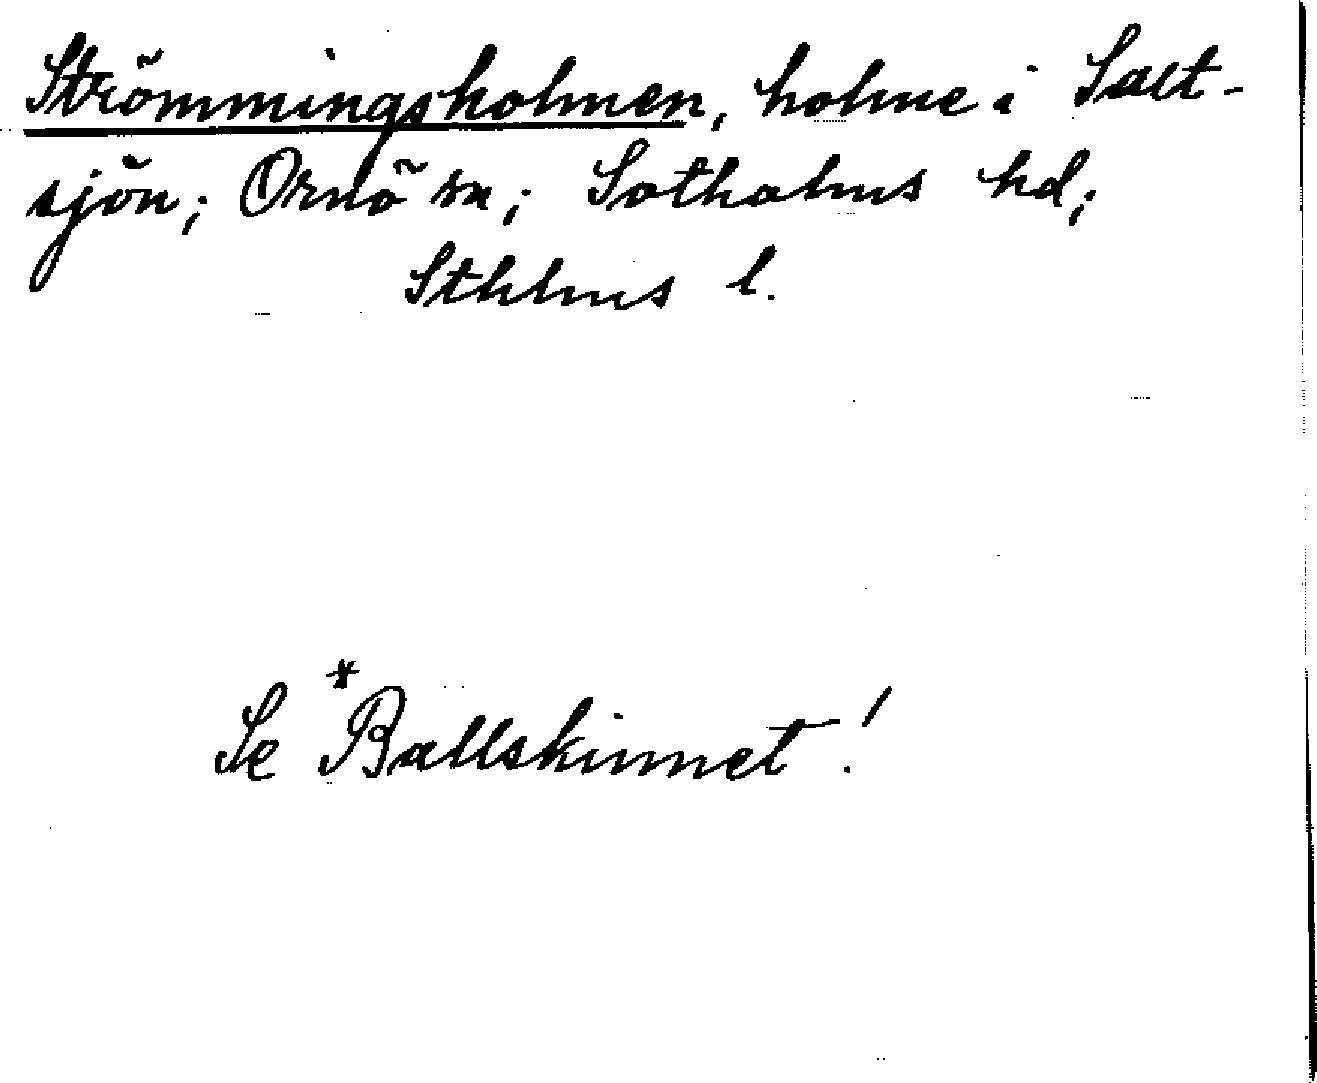 Strömmingsholmen, holme i Salt-
sjön; Ornö sn; Sotholms hd;
Sthlms l.
Se *Ballskinnet!